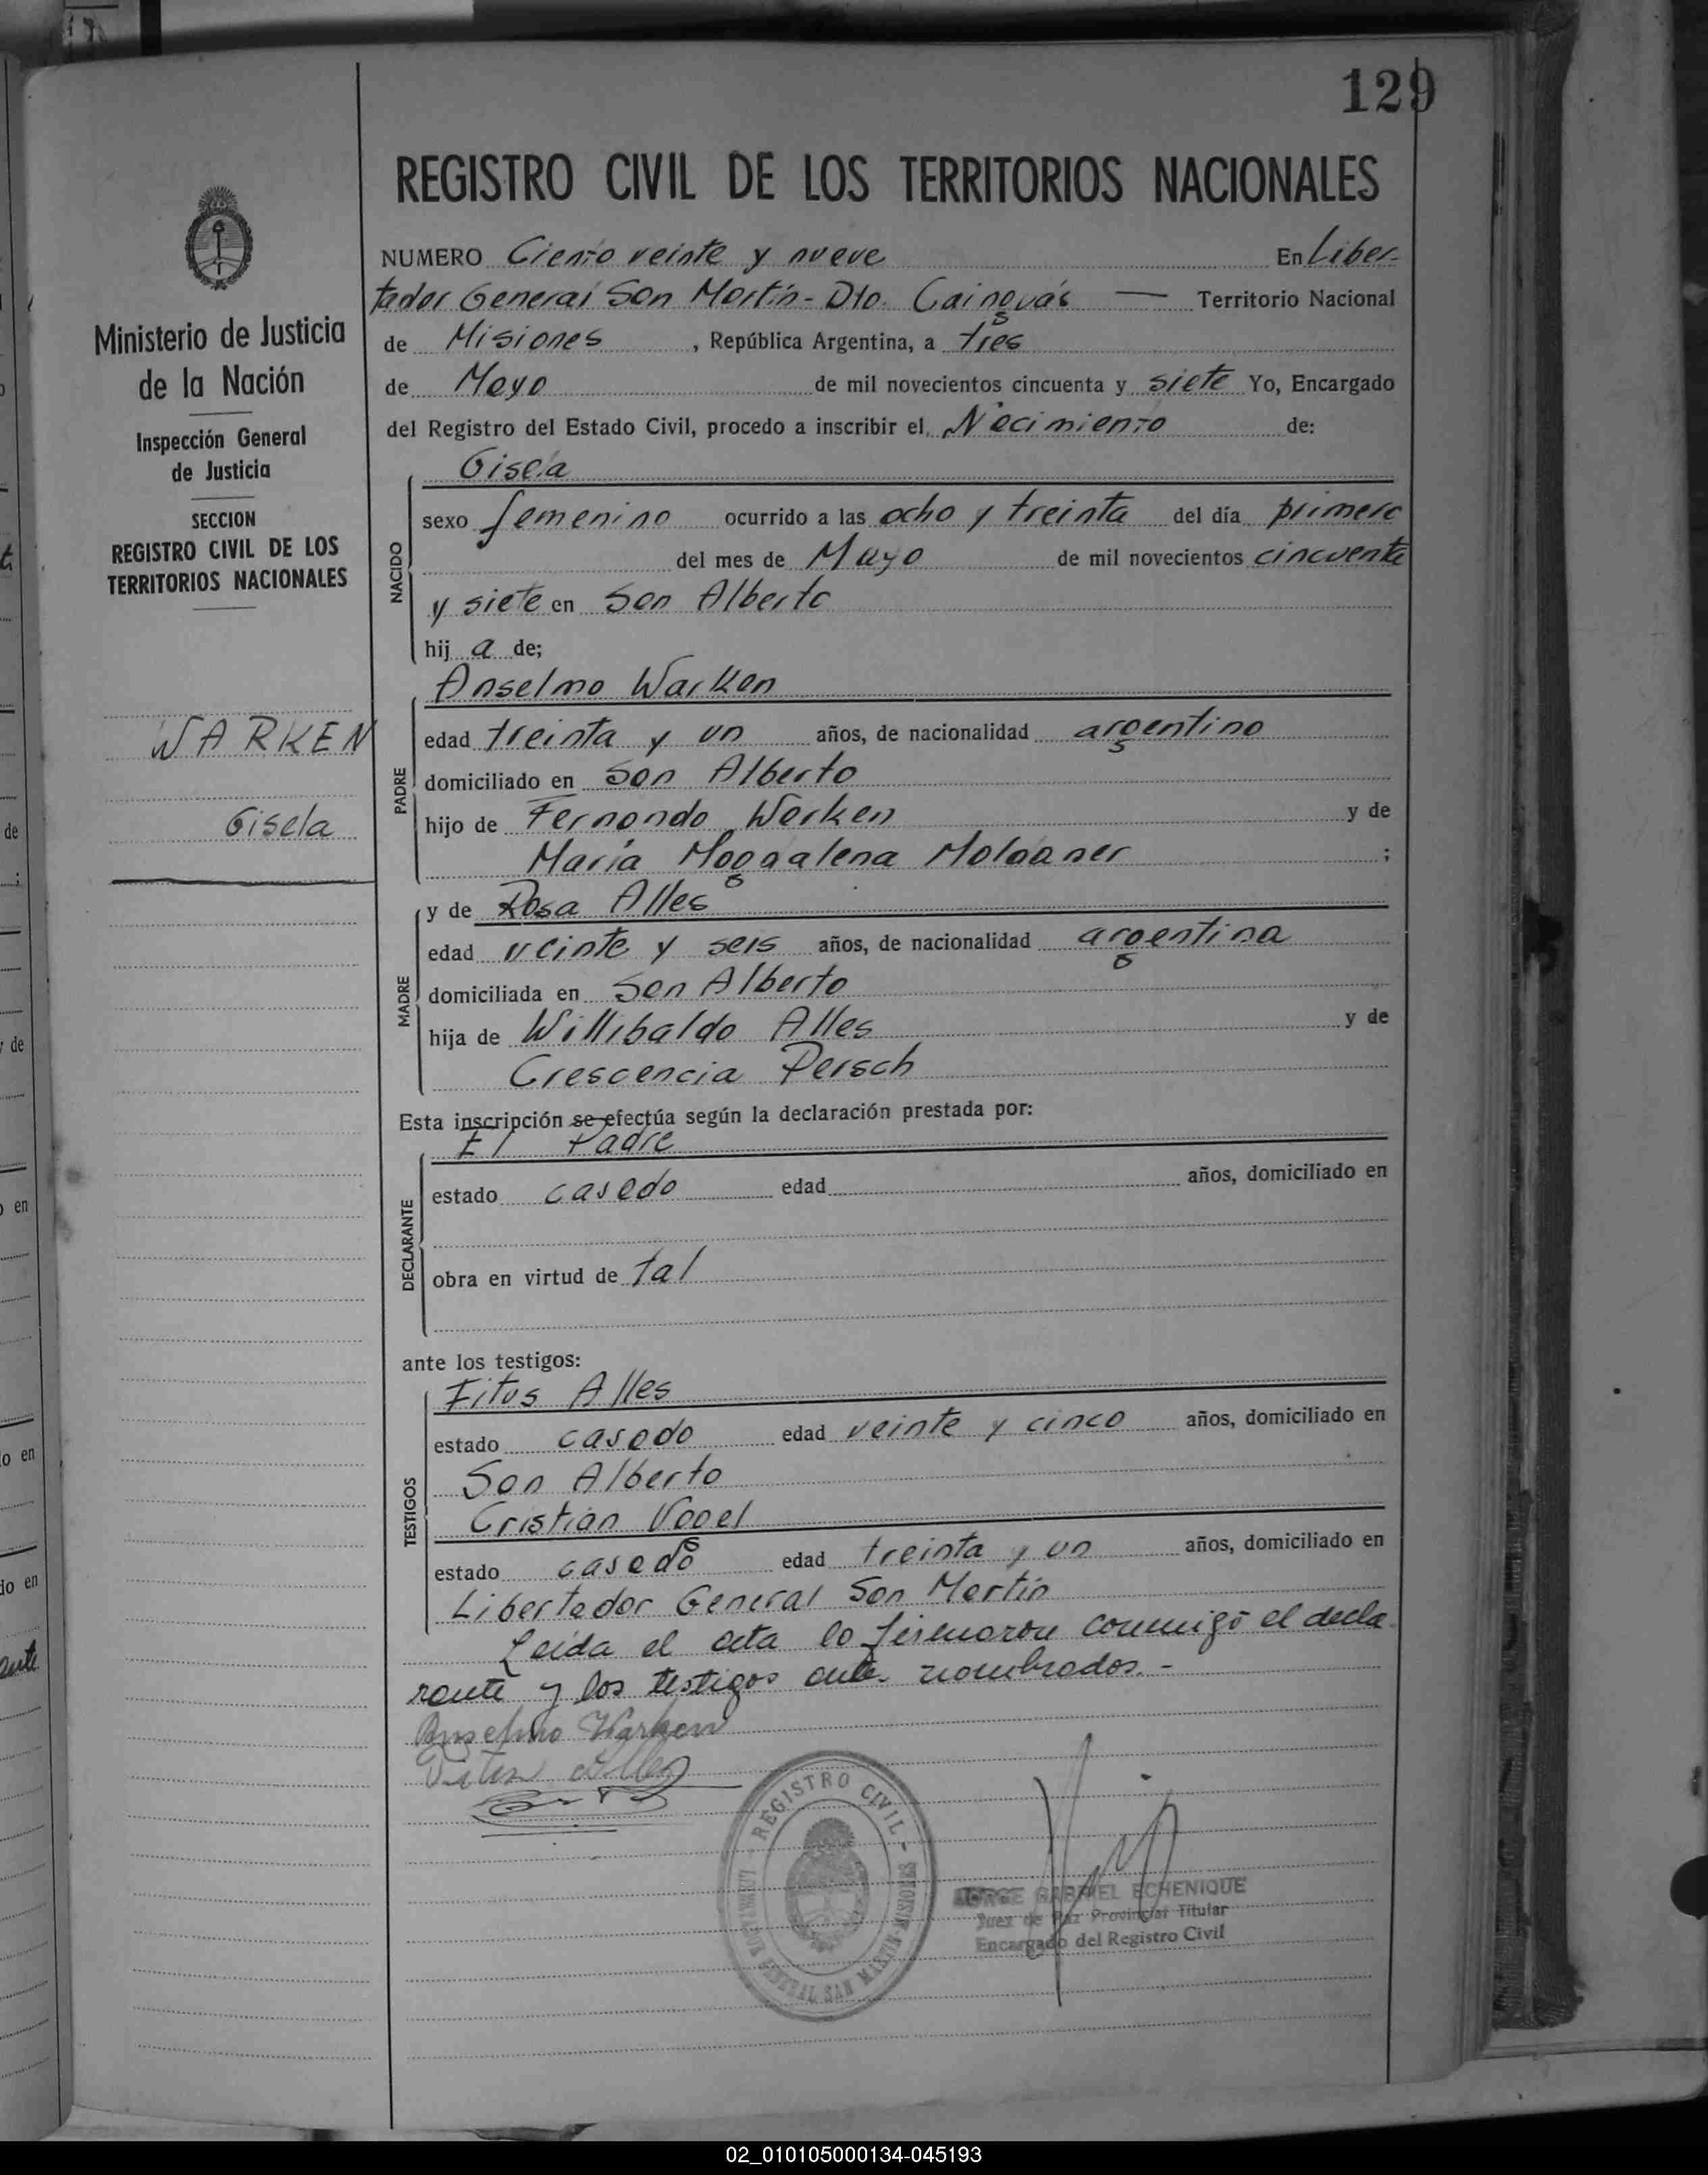 129
REGISTRO CIVIL DE LOS TERRITORIOS NACIONALES
Ministerio de Justicia
de la Nación
Inspección General
de Justicia
SECCION
REGISTRO CIVIL DE LOS
TERRITORIOS NACIONALES
WARKEN
Gisela
NUMERO Ciento veinte y nueve En Liber-
tador General San Martín - Dto. Cainguás — Territorio Nacional
de Misiones, República Argentina, a tres
de Mayo de mil novecientos cincuenta y siete Yo, Encargado
del Registro del Estado Civil, procedo a inscribir el Nacimiento de:
NACIDO
Gisela
sexo femenino ocurrido a las ocho y treinta del día primero
del mes de Mayo de mil novecientos cincuenta
y siete en San Alberto
hij a de;
PADRE
Anselmo Warken
edad treinta y un años, de nacionalidad argentino
domiciliado en San Alberto
hijo de Fernando Warken y de
María Magdalena ;
MADRE
y de Rosa Alles
edad veinte y seis años, de nacionalidad argentina
domiciliada en San Alberto
hija de Willibaldo Alles y de
Crescencia Persch
Esta inscripción se efectúa según la declaración prestada por:
DECLARANTE
El Padre
estado casado edad años, domiciliado en
obra en virtud de tal
ante los testigos:
TESTIGOS
Titus Alles
estado casado edad veinte y cinco años, domiciliado en
San Alberto
Cristian Vogel
estado casado edad treinta y un años, domiciliado en
Libertador General San Martín
Leída el acta lo firmaron conmigo el decla
rante y los testigos ante nombrados.-
Anselmo Warken
Alles
REGISTRO CIVIL - MISIONES
LIBERTADOR GENERAL SAN MARTIN
JORGE GABRIEL ECHENIQUE
Juez de Paz Provincial Titular
Encargado del Registro Civil
de
;
y de
en
do en
do en
02_010105000134-045193